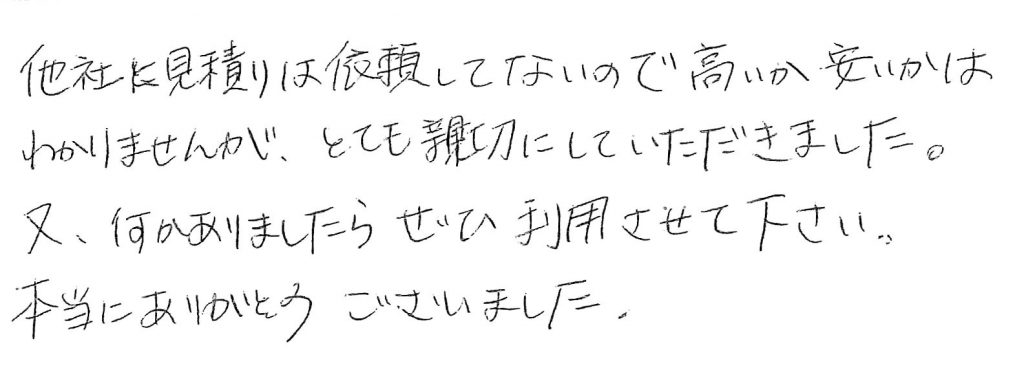 他社に見積りは依頼してないので高いか安いかは
わかりませんが、とても親切にしていただきました。
又、何かありましたらぜひ利用させて下さい。
本当にありがとうございました.